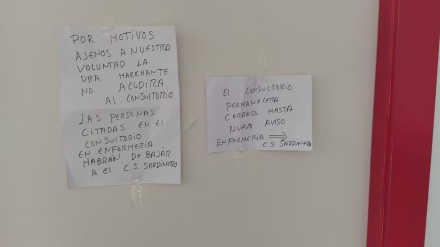 POR MOTIVOS
AJENOS A NUESTRO
VOLUNTAD LA
DRA. MARCHANTE
NO ACUDIRA
AL CONSULTORIO
LAS PERSONAS
CITADAS EN EL
CONSULTORIO
EN ENFERMERIA
HABRAN DE BAJAR
A EL C.S. SARDINERO
EL CONSULTORIO
PERMANECERA
CERRADO HASTA
NUEVO AVISO
ENFERMERIA ⇒
C.S. SARDINERO